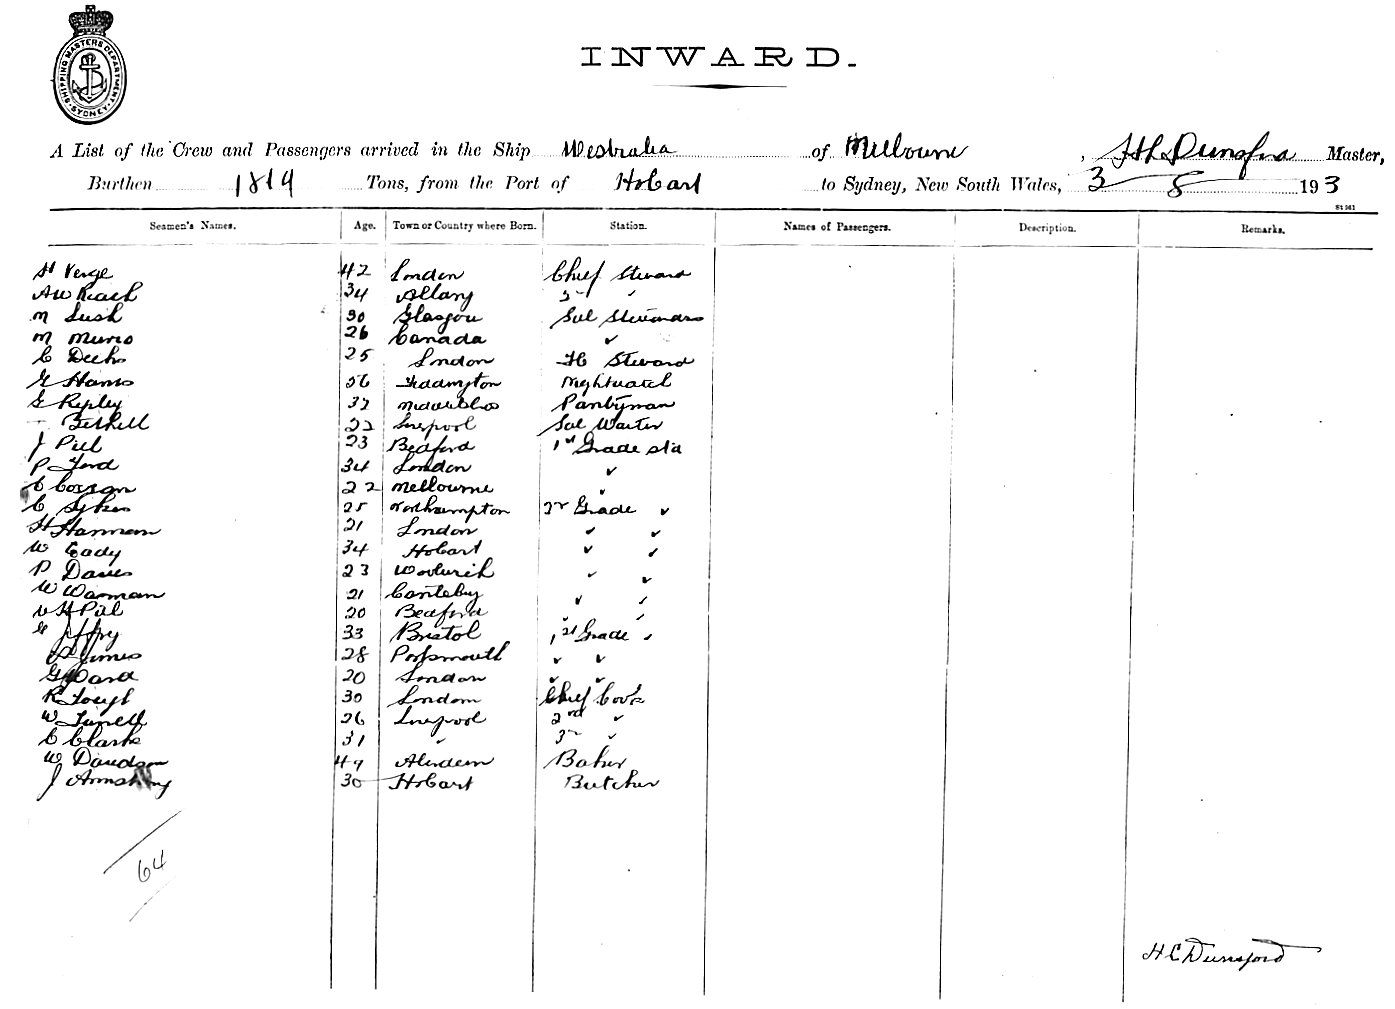 SHIPPING MASTERS DEPARTMENT. SYDNEY
INWARD.
A List of the Crew and Passengers arrived in the Ship Westralia of Melbourne, H C Dunsford Master,
Burthen 1819 Tons, from the Port of Hobart to Sydney, New South Wales, 3 8 193
St 561
Seamen's Names. Age. Town or Country where Born. Station. Names of Passengers. Description. Remarks.
H Verge 42 London Chief Steward
AW 34 Albany 2nd "
M Lush 30 Glasgow Sal Stewards
M Munro 26 Canada "
C Deeks 25 London Steward
G Harris 56 Nightwatch
G Ripley 32 Pantryman
Bethell 22 Liverpool Sal Waiter
J Piel 23 Bedford 1st Grade std
P Ford 34 London "
C Corran 22 Melbourne "
C Sykes 25 Northampton 2nd Grade "
H Harman 21 London " "
W Eady 34 Hobart " "
P Davies 23 Woolwich " "
W Warman 21 " "
H Piel 20 Bedford " "
G Jeffry 33 Bristol 1st Grade "
James 28 Portsmouth " "
G Ward 20 London " "
R 30 London Chief Cook
W 26 Liverpool 2nd "
C Clarke 31 " 3rd "
W Davidson 49 Aberdeen Baker
J Armstrong 30 Hobart Butcher
64
H C Dunsford